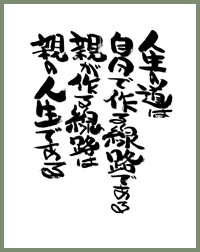 人生の道は
自分で作る線路である
親が作る線路は
親の人生である